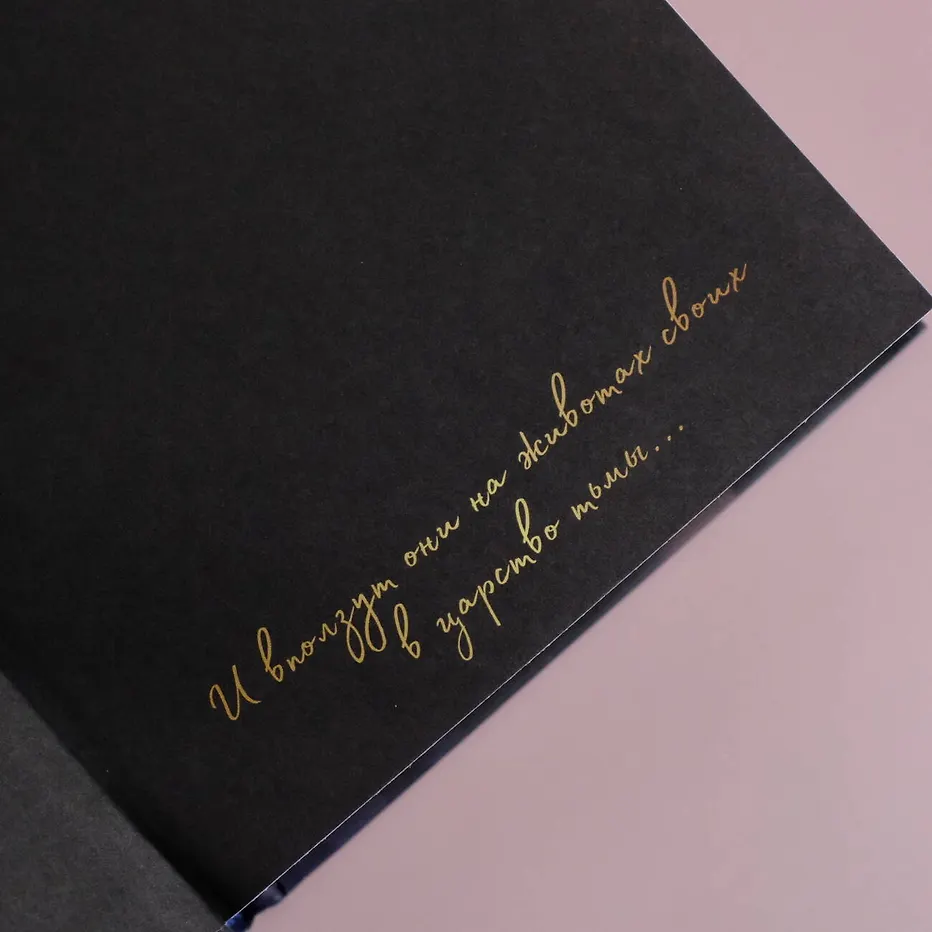 И вползут они на животах своих
в царство тьмы...